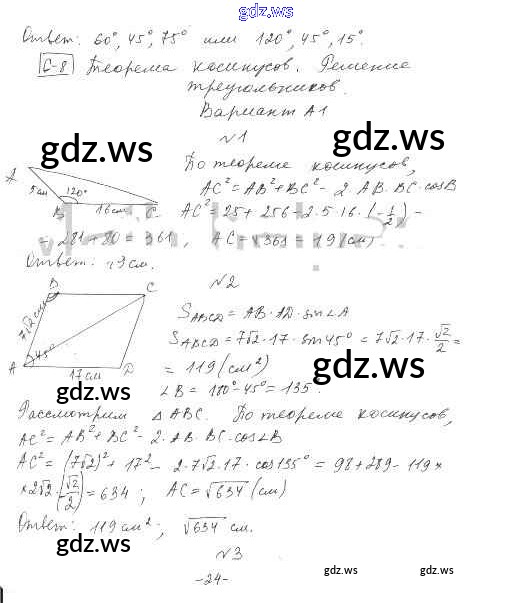 gdz.ws
Ответ: 60°, 45°, 75° или 120°, 45°, 15°.
С-8 Теорема косинусов. Решение
треугольников.
Вариант А1
gdz.ws
gdz.ws
№1
По теореме косинусов,
A
5см
120°
B
16см
C
AC² = AB² + BC² - 2·AB·BC·cosB
AC² = 25 + 256 - 2·5·16·(-1/2) =
= 281 + 80 = 361; AC = √361 = 19 (см)
Ответ: 19 см.
№2
B
C
7√2 см
45°
A
17см
D
S_ABCD = AB·AD·sin∠A
S_ABCD = 7√2·17·sin45° = 7√2·17·√2/2 =
= 119 (см²)
∠B = 180° - 45° = 135°.
gdz.ws
gdz.ws
Рассмотрим △ABC. По теореме косинусов,
AC² = AB² + BC² - 2·AB·BC·cos∠B
AC² = (7√2)² + 17² - 2·7√2·17·cos135° = 98 + 289 - 119×
×2√2·(-√2/2) = 634; AC = √634 (см)
Ответ: 119 см²; √634 см.
gdz.ws
gdz.ws
№3
-24-
gdz.ws
gdz.ws